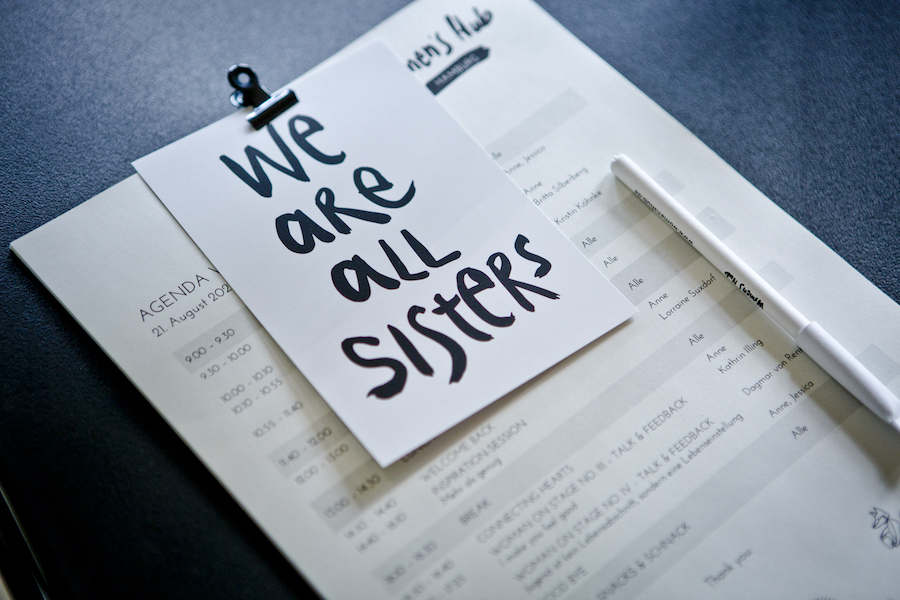 We
are
all
sisters
men's Hub
HAMBURG
AGENDA
21. August 202
9.00 - 9.30
9.30 - 10.00
10.00 - 10.10
10.10 - 10.55
10.55 - 11.40
11.40 - 12.00
12.00 - 13.00
13.00 - 14.30
WELCOME BACK
INSPIRATION SESSION
Mehr als genug
BREAK
CONNECTING HEARTS
WOMAN ON STAGE NO. III - TALK & FEEDBACK
I make you feel good
WOMAN ON STAGE NO. IV - TALK & FEEDBACK
Jugend ist kein Lebensabschnitt, sondern eine Lebenseinstellung
GOOD BYE
SNACKS & SCHNACK
Thank you
Anne, Jessica
Anne
Britta Silberberg
Kristin Kahnke
Alle
Alle
Alle
Anne
Lorraine Suxdorf
Alle
Anne
Kathrin Illing
Dagmar van Ren
Anne, Jessica
Alle